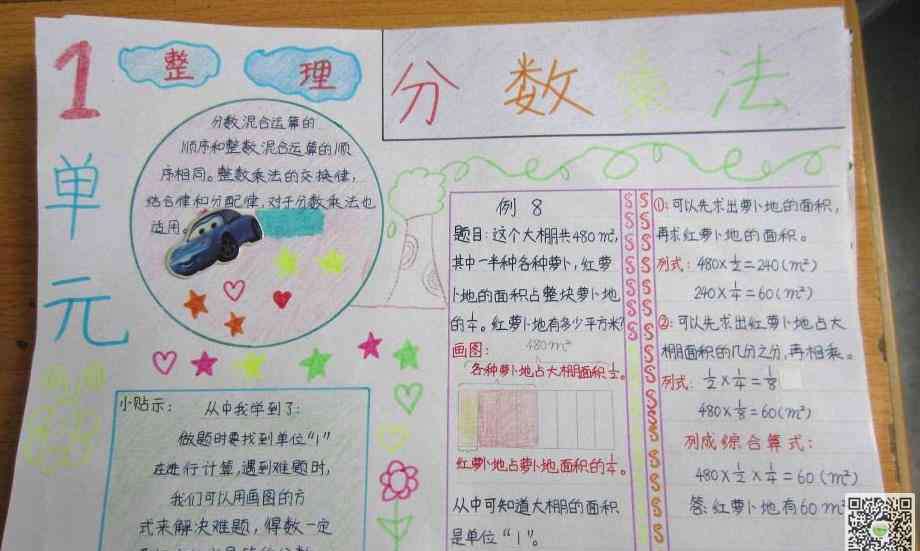 1单元
整理
分数乘法
分数混合运算的
顺序和整数混合运算的顺
序相同。整数乘法的交换律,
结合律和分配律,对于分数乘法也
适用。
小贴示:
从中我学到了:
做题时要找到单位“1”
在进行计算,遇到难题时,
我们可以用画图的方
式来解决难题,得数一定
例8
题目:这个大棚共480m²,
其中一半种各种萝卜,红萝
卜地的面积占整块萝卜地
的¼。红萝卜地有多少平方米?
画图:
480m²
各种萝卜地占大棚面积½。
红萝卜地占萝卜地面积的¼。
从中可知道大棚的面积
是单位“1”。
①:可以先求出萝卜地的面积,
再求红萝卜地的面积。
列式:480×½=240(m²)
240×¼=60(m²)
②:可以先求出红萝卜地占大
棚面积的几分之分,再相乘。
列式:½×¼=⅛
480×⅛=60(m²)
列成综合算式:
480×½×¼=60(m²)
答:红萝卜地有60m²